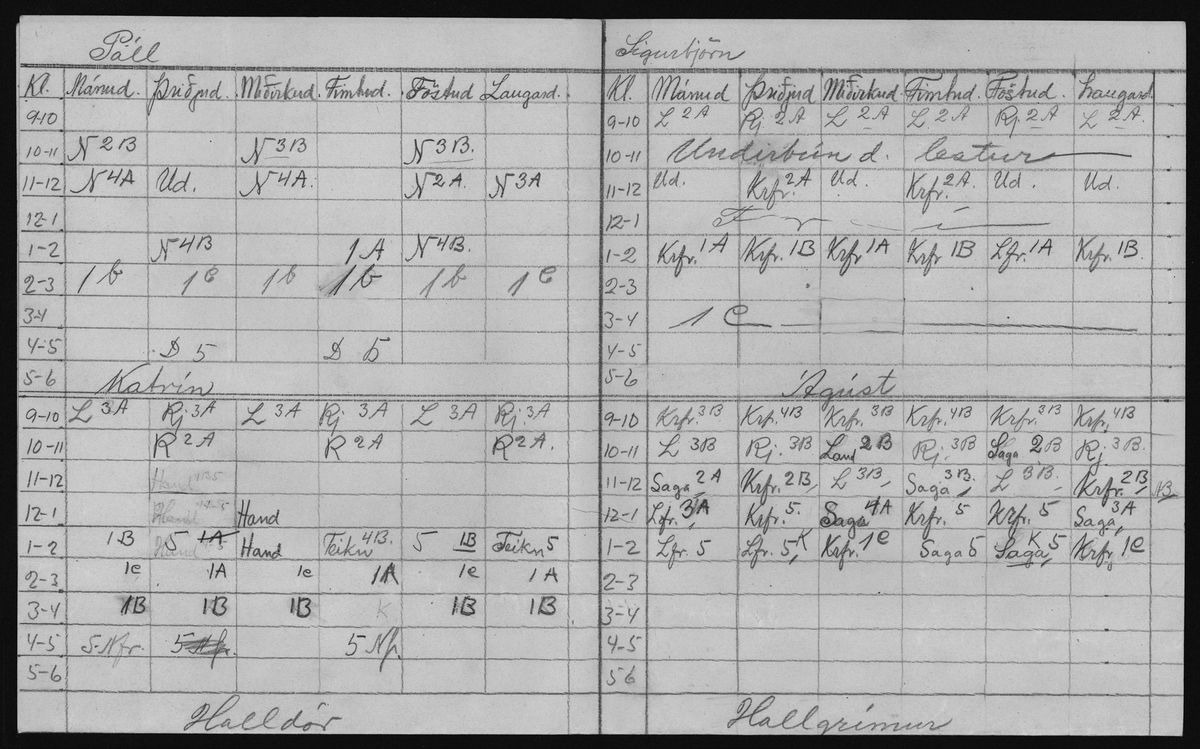 Páll
Kl. Mánud. Þriðjud. Miðvikud. Fimtud. Föstud Laugard.
9-10
10-11 N 2B N 3B N 3B.
11-12 N 4A Ud. N 4A. N 2A. N 3A
12-1
1-2 N 4B 1 A N 4B.
2-3 1 b 1 C 1 b 1 b 1 b 1 C
3-4
4-5 D 5 D 5
5-6
Katrín
9-10 L 3A Rj. 3A L 3A Rj 3A L 3A Rj. 3A
10-11 R 2A R 2A R 2A.
11-12 Hand
12-1 Hand Hand
1-2 1B 5 1A Hand Teikn 4B. 5 1B Teikn 5
2-3 1c 1A 1c 1A 1c 1A
3-4 1B 1B 1B K 1B 1B
4-5 5 Nfr. 5 Nfr. 5 Nfr.
5-6
Halldór
Sigurbjörn
Kl. Mánud Þriðjud Miðvikud Fimtud. Föstud. Laugard
9-10 L 2A Rj. 2A L 2A L 2A Rj. 2A L 2A.
10-11 Undirbún d. lestur
11-12 Ud. Krfr. 2A Ud. Krfr. 2A. Ud. Ud.
12-1 F r í
1-2 Krfr. 1A Krfr. 1B Krfr. 1A Krfr 1B Lfr. 1A Krfr. 1B.
2-3
3-4 1 C
4-5
5-6
Ágúst
9-10 Krfr. 3B Krfr. 4B Krfr. 3B Krfr. 4B Krfr. 3B Krfr. 4B
10-11 L 3B Rj. 3B Land 2B Rj. 3B Saga 2B Rj. 3B.
11-12 Saga 2A Krfr. 2B L 3B Saga 3B. L 3B. Krfr. 2B NB
12-1 Lfr. 3A Krfr. 5. Saga 4A Krfr. 5 Krfr. 5 Saga 3A
1-2 Lfr. 5 Lfr. 5 K Krfr. 1C Saga 5 Saga K 5 Krfr. 1C
2-3
3-4
4-5
5 6
Hallgrímur